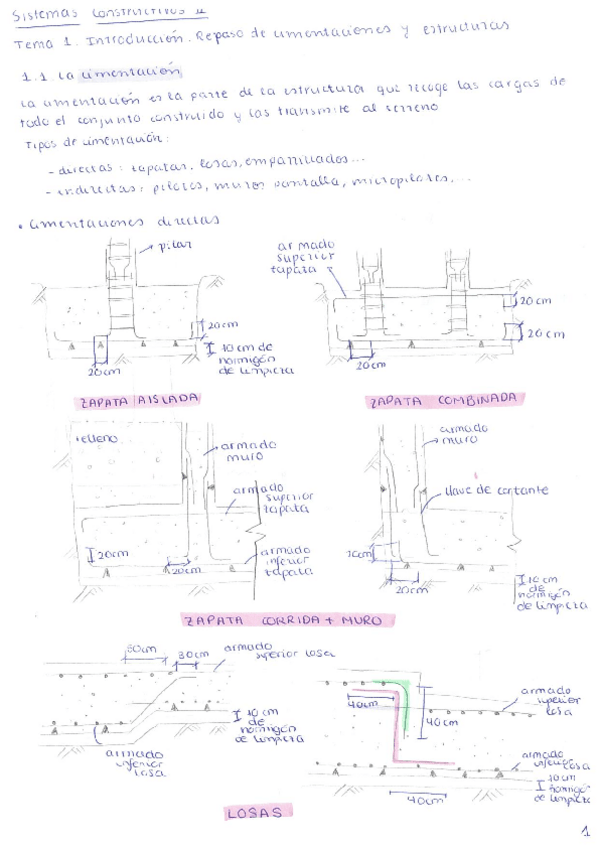 Sistemas Constructivos II
Tema 1. Introducción. Repaso de cimentaciones y estructuras
1.1. La cimentación
La cimentación es la parte de la estructura que recoge las cargas de
todo el conjunto construido y las transmite al terreno
Tipos de cimentación:
- directas: zapatas, losas, emparrillados...
- indirectas: pilotes, muros pantalla, micropilotes,...
• Cimentaciones directas
pilar
20cm
10cm de
hormigón
de limpieza
20cm
ZAPATA AISLADA
armado
superior
zapata
20cm
20cm
20cm
ZAPATA COMBINADA
relleno
armado
muro
armado
superior
zapata
20cm
20cm
armado
inferior
zapata
armado
muro
llave de cortante
20cm
10 cm
de
hormigón
de limpieza
ZAPATA CORRIDA + MURO
armado
superior losa
10 cm
de
hormigón
de limpieza
armado
inferior
losa
40cm
40cm
armado
superior
losa
armado
inferior losa
10cm
hormigón
de limpieza
40cm
LOSAS
1